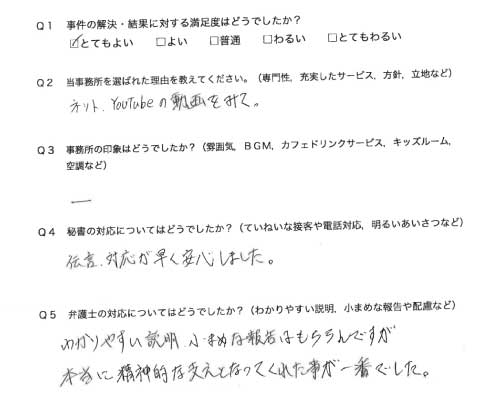 Q1 事件の解決・結果に対する満足度はどうでしたか？
☑とてもよい □よい □普通 □わるい □とてもわるい
Q2 当事務所を選ばれた理由を教えてください。（専門性，充実したサービス，方針，立地など）
ネット、YouTubeの動画をみて。
Q3 事務所の印象はどうでしたか？（雰囲気，BGM，カフェドリンクサービス，キッズルーム，
空調など）
ー
Q4 秘書の対応についてはどうでしたか？（ていねいな接客や電話対応，明るいあいさつなど）
伝言、対応が早く安心しました。
Q5 弁護士の対応についてはどうでしたか？（わかりやすい説明，小まめな報告や配慮など）
わかりやすい説明、小まめな報告はもちろんですが
本当に精神的な支えとなってくれた事が一番でした。